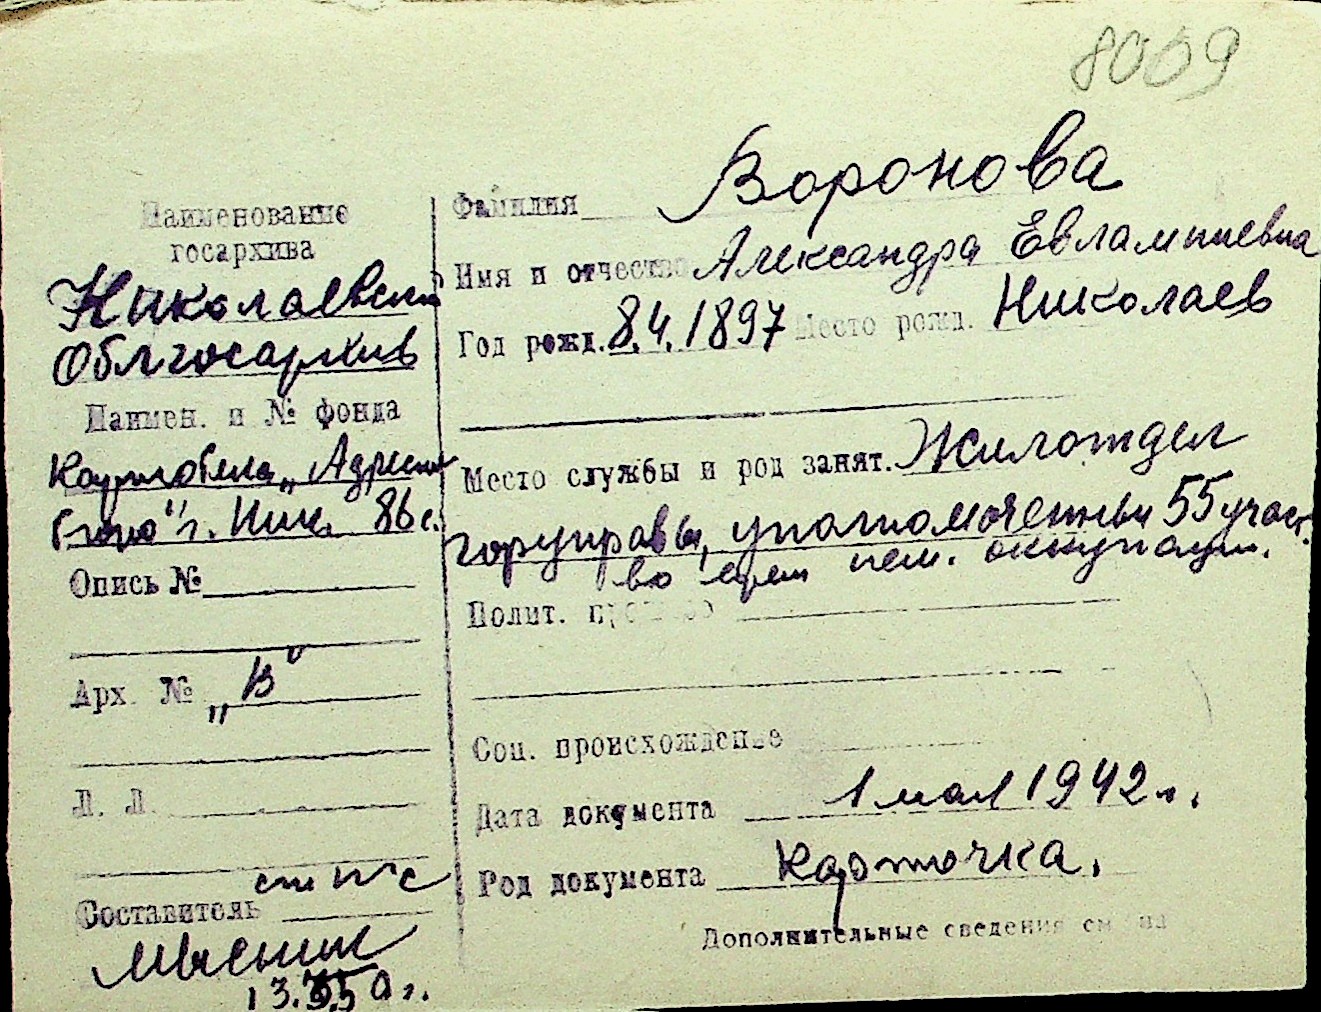 8069
Наименование
госархива
Николаевский
Облгосархив
Наимен. и № фонда
Картотека „Адресн
бюро" г. Ник. 86 с.
Опись №
Арх. №
„В"
Л. Л.
Составитель
ст н/с
13. 50 г.
Фамилия Воронова
Имя и отчество Александра Евлампиевна
Год рожд. 8.4.1897 Место рожд. Николаев
Место службы и род занят. Жилотдел
горуправы, уполномоченный 55 участ.
во врем нем. оккупации.
Полит. прошлое
Соц. происхождение
Дата документа 1 мая 1942 г.
Род документа Карточка.
Дополнительные сведения см. на